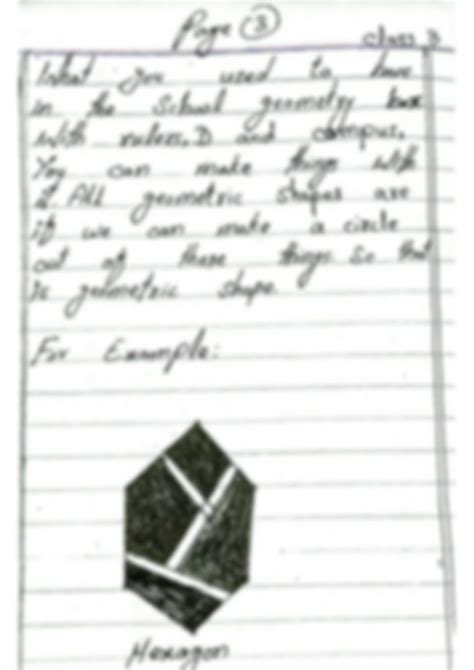 Page 3
class 3
What you used to have
in the school geometry box
with rulers, D and compus.
You can make things with
it. All geometric shapes are
if we can make a circle
out of these things. so that
is geometric shape.
For Example:
Hexagon